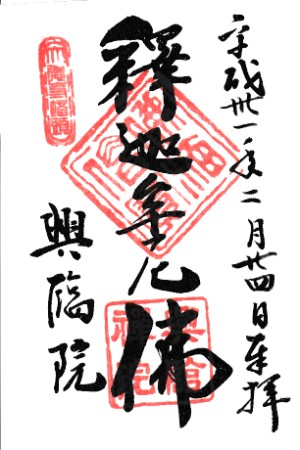 平成卅一年二月廿四日奉拝
釋迦牟尼佛
興臨院